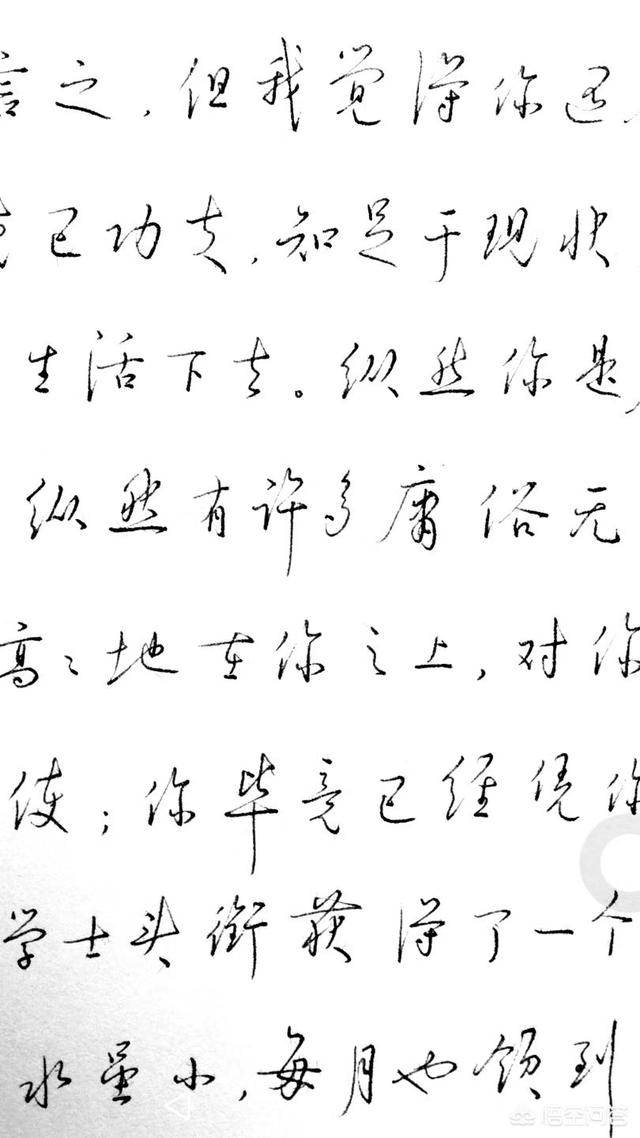 言之，但我觉得你
已功夫，知足于现状
生活下去。纵然你是
纵然有许多庸俗无
高〻地在你之上，对你
使；你毕竟已经凭你
学士头衔获得了一个
水量小，每月也领到
悟空问答